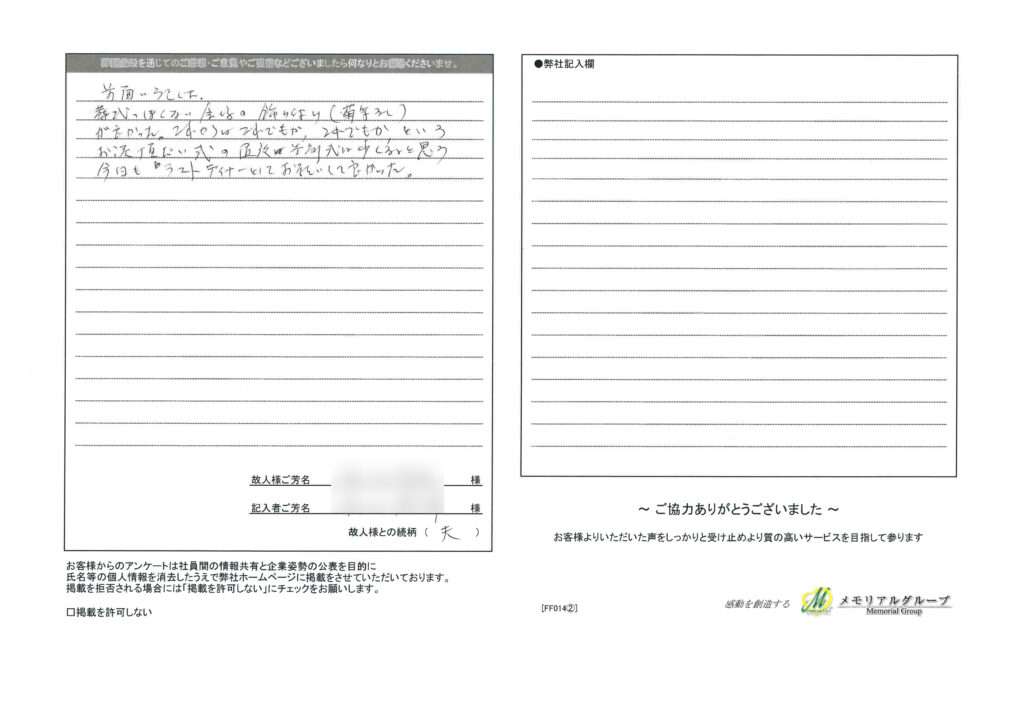 葬儀全般を通じてのご感想・ご意見やご要望などございましたら何なりとお書きくださいませ。
葬式っぽくない 会場の飾りつけ(菊等なし)
がよかった。
でもか, でもか という
式の 直後 告別式は と思う
今日も "ラストディナーとして して良かった。
故人様ご芳名 様
記入者ご芳名 様
故人様との続柄 ( 夫 )
お客様からのアンケートは社員間の情報共有と企業姿勢の公表を目的に
氏名等の個人情報を消去したうえで弊社ホームページに掲載をさせていただいております。
掲載を拒否される場合には「掲載を許可しない」にチェックをお願いします。
□掲載を許可しない
●弊社記入欄
～ ご協力ありがとうございました ～
お客様よりいただいた声をしっかりと受け止めより質の高いサービスを目指して参ります
[FF014②]
感動を創造する
メモリアルグループ
Memorial Group